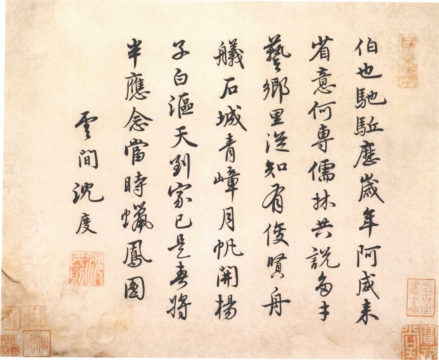 伯也馳驅歷歲年阿咸来
省意何專儒林共說多才
藝鄉里从知有俊賢舟
艤石城青嶂月帆開揚
子白漚天到家已是春將
半應念當時蠟鳳圓
雲間沈度